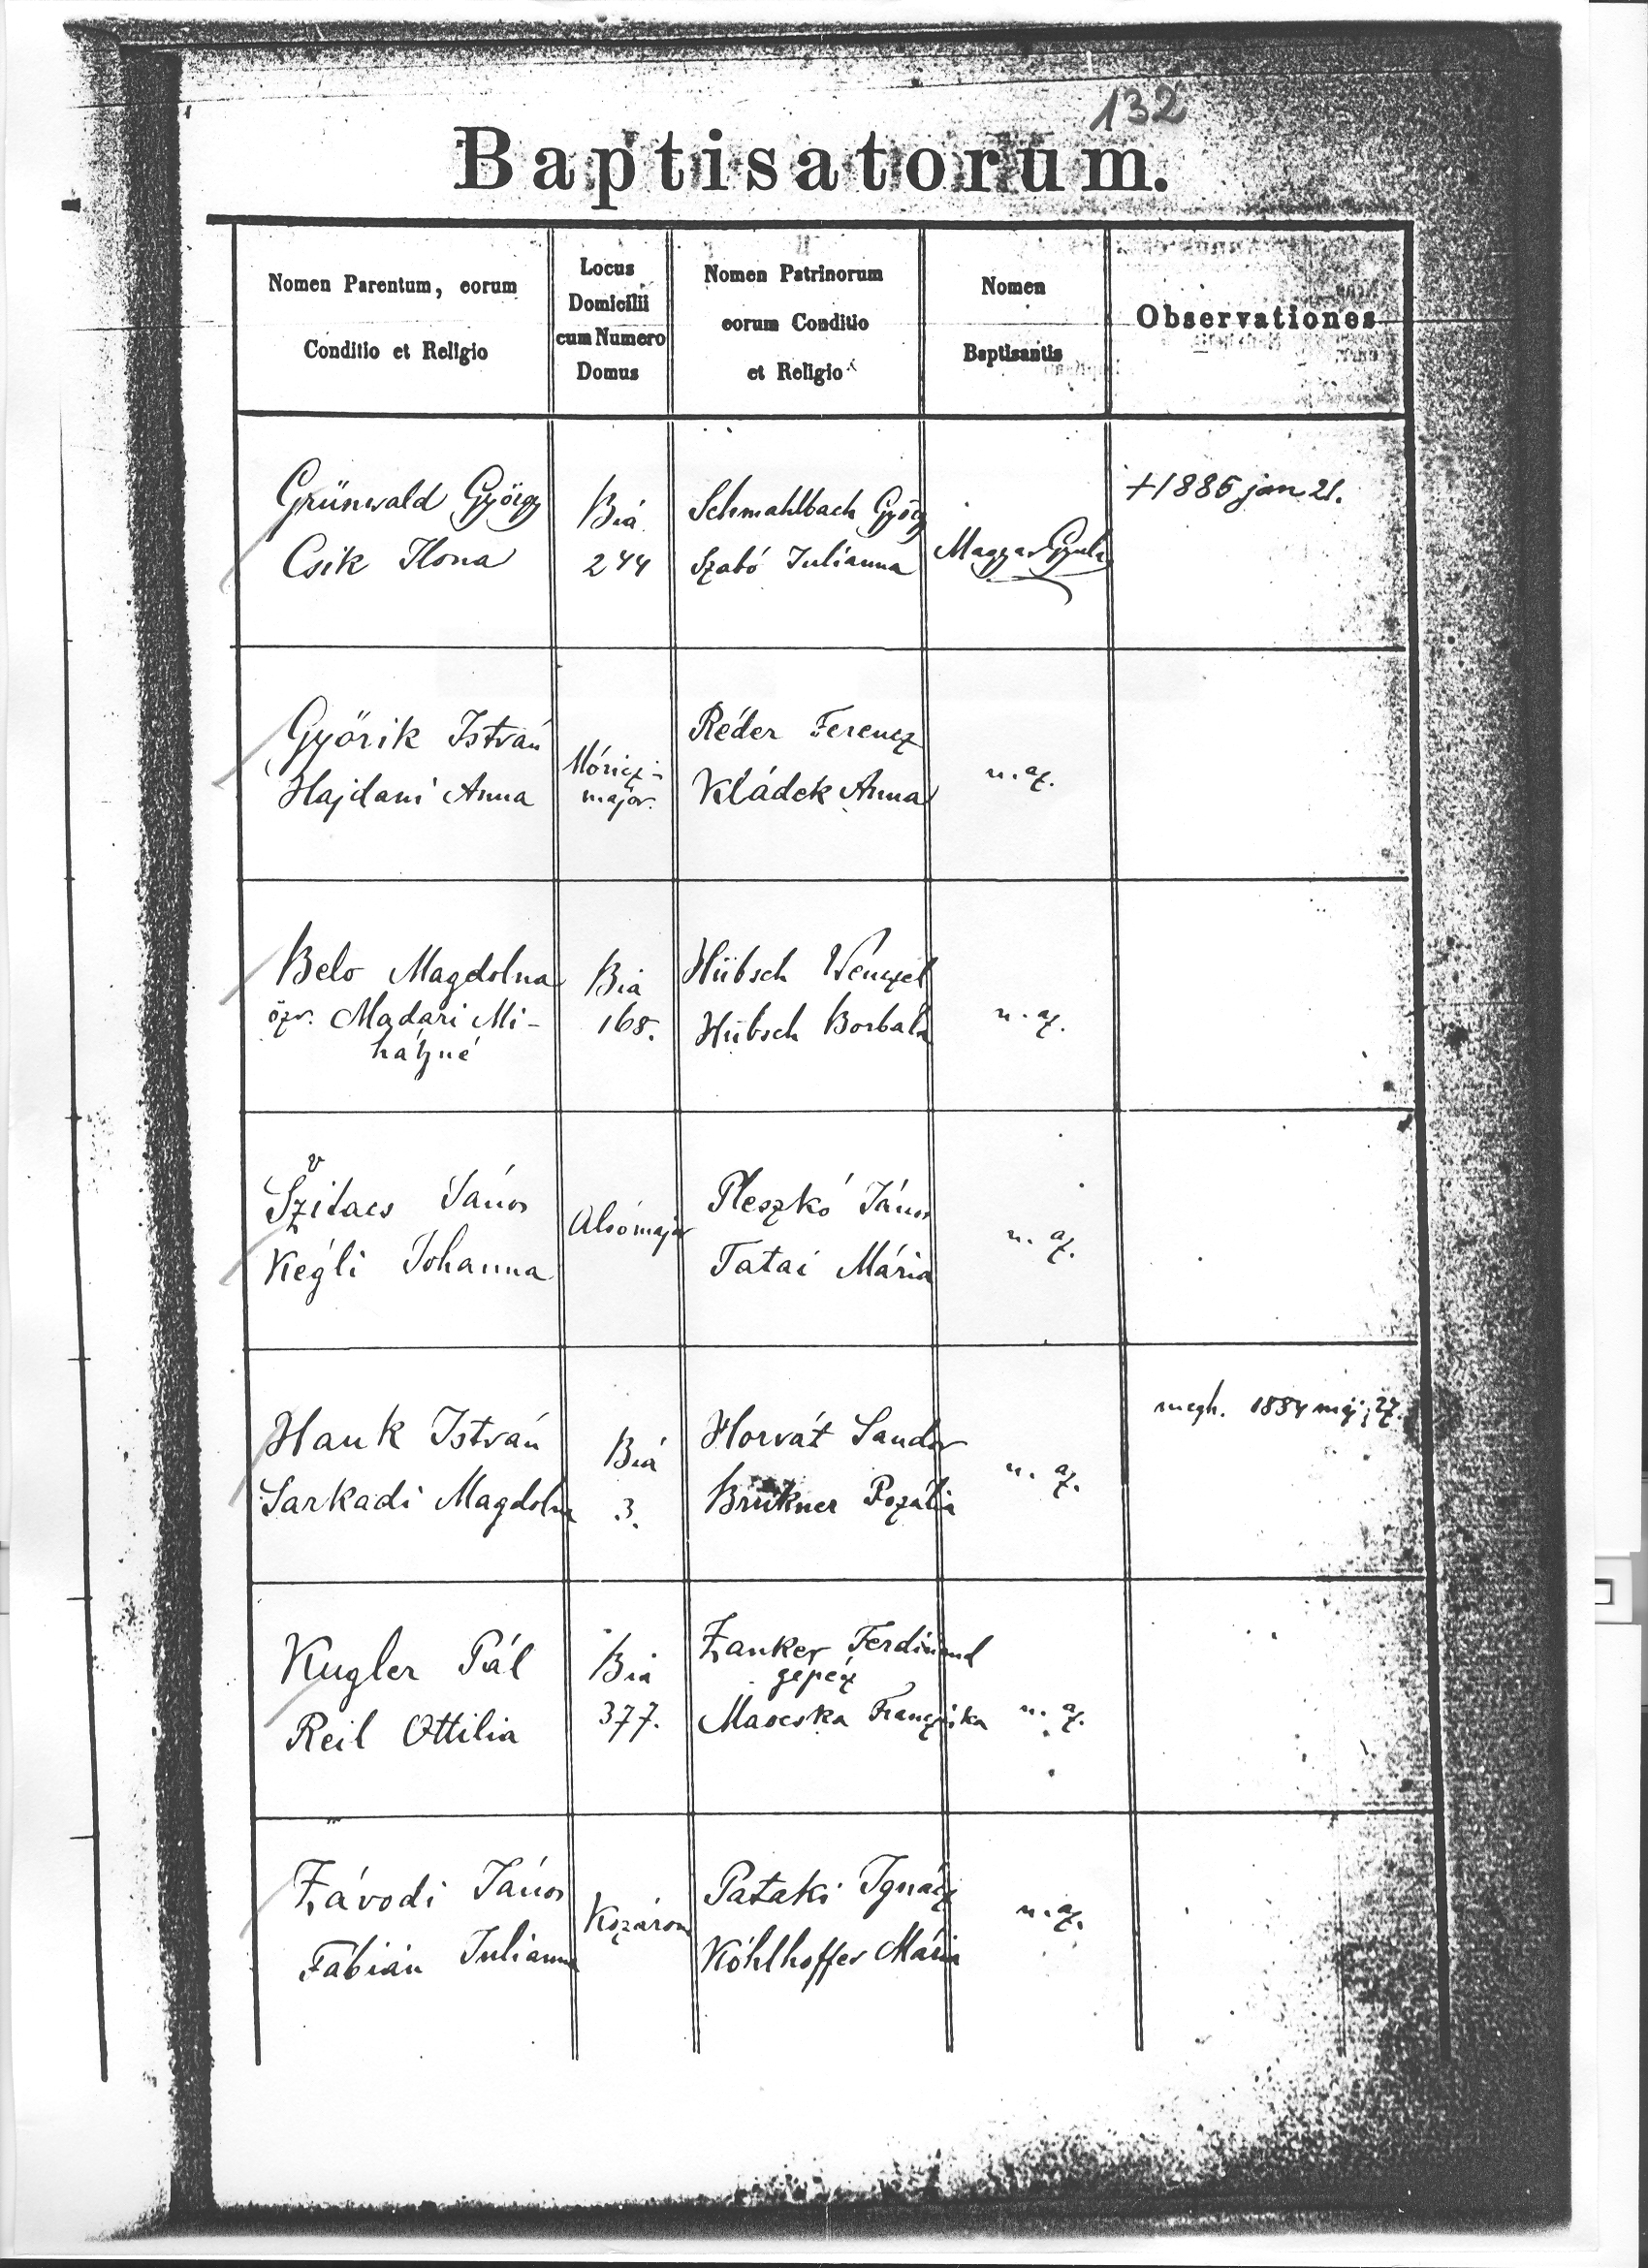 132
Baptisatorum.
Nomen Parentum, eorum
Conditio et Religio
Locus
Domicilii
cum Numero
Domus
Nomen Patrinorum
eorum Conditio
et Religio
Nomen
Baptisantis
Observationes
Grünwald György
Csik Ilona
Bia
244
Schmahlbach György
Szabó Julianna
Magyar Gyula
+1886 jan 21.
Györik István
Hajdani Anna
Móricz-
major.
Réder Ferencz
Kládek Anna
u. az.
Belo Magdolna
özv. Madari Mi-
hályné
Bia
168.
Hübsch Wenzel
Hübsch Borbala
u. az.
v
Szilacs János
Kégli Johanna
Alsómajor
Pleszkó János
Tatai Mária
u. az.
Hauk István
Sarkadi Magdolna
Biá
3.
Horvát Sandor
Brukner Rozália
u. az.
megh. 1884 máj. 27.
Kugler Pál
Reil Ottilia
Bia
377.
Zanker Ferdinand
gepész
Macska Francziska
u. az.
Závodi János
Fábián Julianna
Kozárom
Pataki Ignácz
Kohlhoffer Mária
u. az.